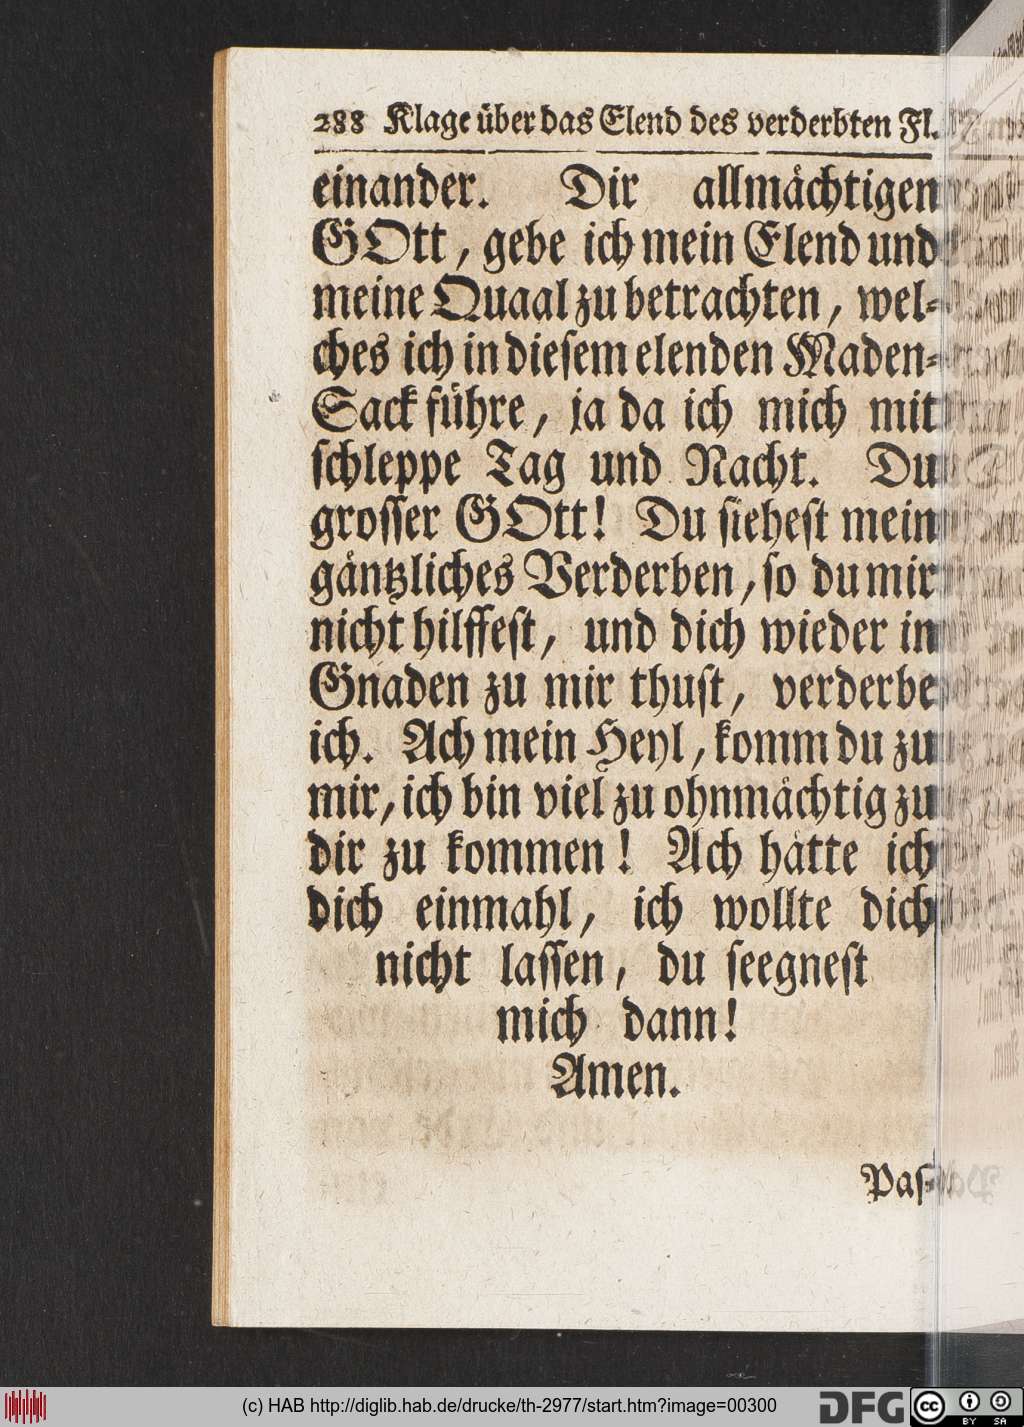 288 Klage über das Elend des verderbten Fl.
einander. Dir allmächtigen
GOtt, gebe ich mein Elend und
meine Quaal zu betrachten, wel-
ches ich in diesem elenden Maden-
Sack führe, ja da ich mich mit
schleppe Tag und Nacht. Du
grosser GOtt! Du siehest mein
gäntzliches Verderben, so du mir
nicht hilffest, und dich wieder in
Gnaden zu mir thust, verderbe
ich. Ach mein Heyl, komm du zu
mir, ich bin viel zu ohnmächtig zu
dir zu kommen! Ach hätte ich
dich einmahl, ich wollte dich
nicht lassen, du seegnest
mich dann!
Amen.
Pas-
(c) HAB http://diglib.hab.de/drucke/th-2977/start.htm?image=00300
DFG
cc BY SA